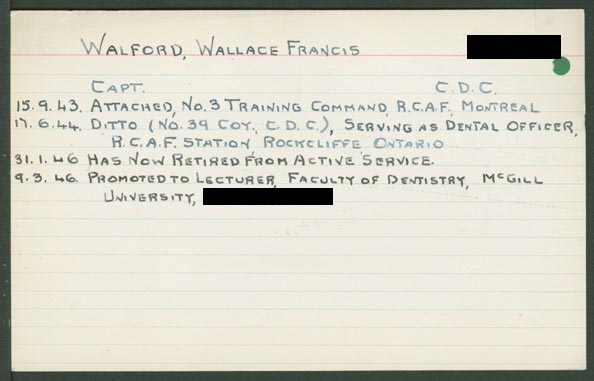 WALFORD, WALLACE FRANCIS
CAPT. C.D.C.
15.9.43. ATTACHED, NO. 3 TRAINING COMMAND, R.C.A.F, MONTREAL
17.6.44. DITTO (NO. 39 COY., C.D.C.), SERVING AS DENTAL OFFICER,
R.C.A.F. STATION ROCKCLIFFE ONTARIO
31.1.46 HAS NOW RETIRED FROM ACTIVE SERVICE.
9.3.46. PROMOTED TO LECTURER, FACULTY OF DENTISTRY, MCGILL
UNIVERSITY,